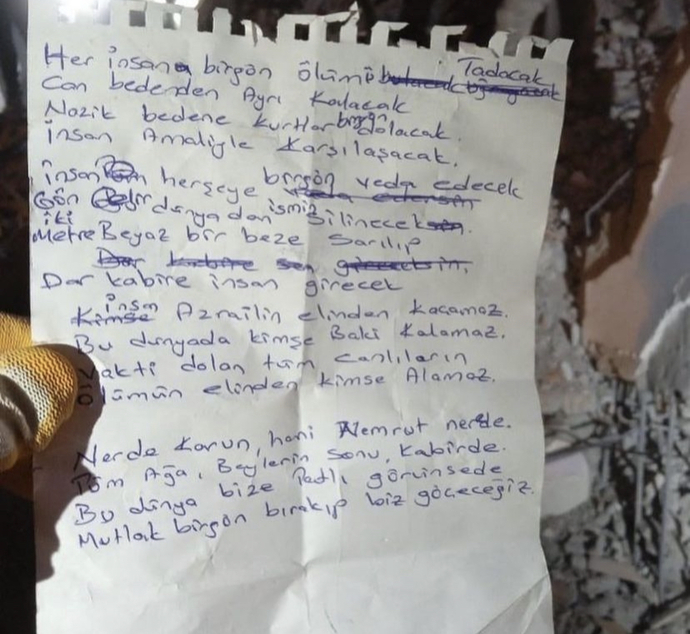 Her insana birgön ölümü Tadacak
Can bedenden Ayrı Kalacak
Nazik bedene kurtlar birgün dolacak.
insan Amaliyle Karşılaşacak.
insan herşeye birgön veda edecek
Gön Gelir dünyadan ismin Silinecek.
iki Metre Beyaz bir beze sarılıp
Dar kabire sen gireceksin.
Dar kabire insan girecek
Kimse insan Azrailin elinden kaçamaz.
Bu dünyada kimse Baki Kalamaz.
Vakti dolan tüm canlıların
Ölümün elinden kimse Alamaz.
Nerde Karun, hani Nemrut nerde.
Tüm Ağa, Beylerin sonu, Kabirde.
Bu dünya bize Tatlı görünsede
Mutlak birgön bırakıp biz göçeceğiz.